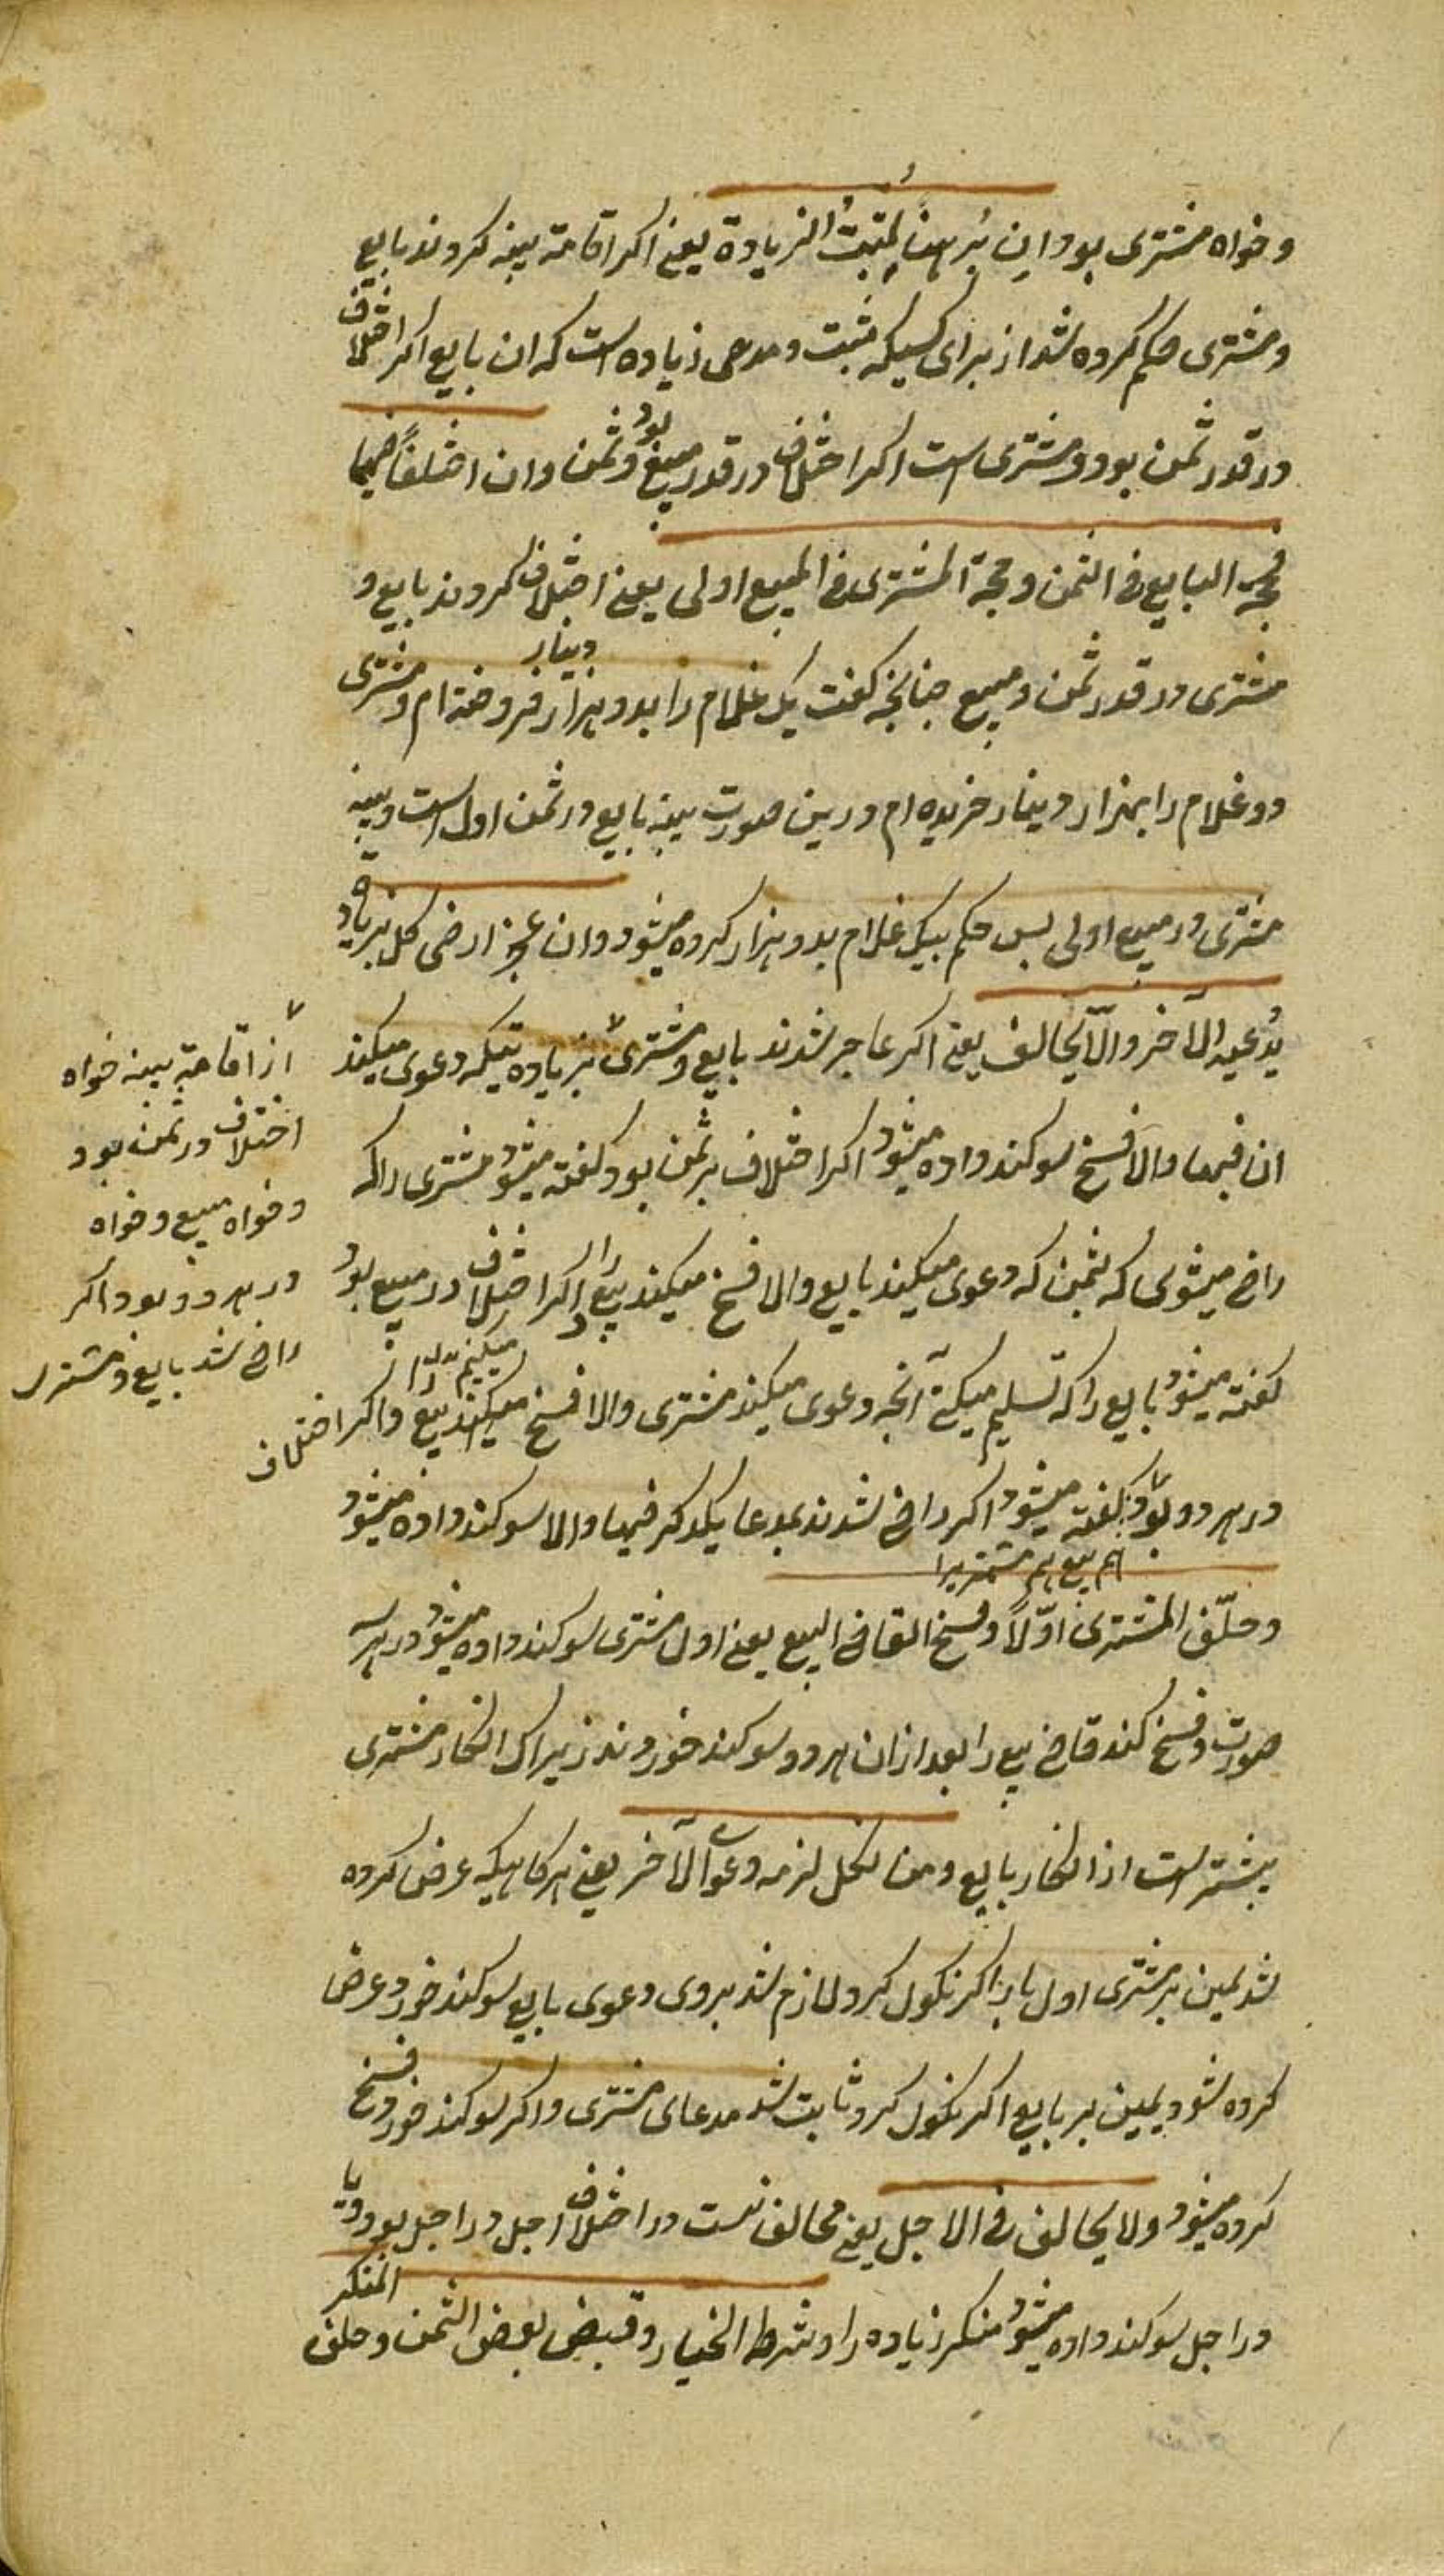 و خواه مشتری بود و این برهنا لمثبت الزیادة یعنی اکر اقامة بینه کردند بایع
و مشتری حکم کرده شد از برای کسیکه مثبت و مدعی زیاده است که ان بایع اکر اختلاف
در قدر ثمن بود و مشتری است اکر اختلاف در قدر مبیع بود و ثمن وان اختلفا فیهما
فحجة البایع فی الثمن و حجة المشتری فی المبیع اولی یعنی اختلاف کردند بایع و
مشتری در قدر ثمن و مبیع چنانچه کفت یک غلام را بدو هزار دینار فروخته ام و مشتری
دو غلام را بهزار دینار خریده ام درین صورت بینه بایع در ثمن اول است و بینه
مشتری در مبیع اولی پس حکم بیک غلام بدو هزار کرده میشود وان عجزا رضی کل بزیادة
یدعیه الآخر والّا تحالفا یعنی اکر عاجز شدند بایع و مشتری بزیادتیکه دعوی میکند
از اقامة بینه خواه
اختلاف در ثمن بود
و خواه مبیع و خواه
در هر دو بود اکر
راضی شد بایع و مشتری
ان فبها والا فسخ سوکند داده میشود اکر اختلاف بر ثمن بود کفته میشود مشتری را که
راضی میشوی که بثمن که دعوی میکند بایع والا فسخ میکند بیع را و اکر اختلاف در مبیع بود
کفته میشود بایع را که تسلیم میکنی آنچه دعوی میکند مشتری والا فسخ میکند بیع و اکر اختلاف
در هر دو بود کفته میشود اکر راضی شدند بمدعا یکدکر فبها والا سوکند داده میشود
هم بیع هم مشتریرا
و حلّف المشتری اوّلا و فسخ القاضی البیع یعنی اول مشتری سوکند داده میشود در هر سه
صورت و فسخ کند قاضی بیع را بعد از ان هر دو سوکند خوردند زیراک انکار مشتری
بیشتر است از انکار بایع و من نکل لزمه دعوی الآخر یعنی هرکاهیکه عرض کرده
شد یمین بر مشتری اول بار اکر نکول کرد لازم شد بروی دعوی بایع سوکند خورد عرض
کرده شود یمین بر بایع اکر نکول کرد ثابت شد مدعای مشتری و اکر سوکند خورد فسخ
کرده میشود ولا تحالف فی الاجل یعنی تحالف نیست در اختلاف اجل در اجل بود و یا
در اجل سوکند داده میشود منکر زیاده را و شرط الخیار و قبض بعض الثمن و حلف المنکر